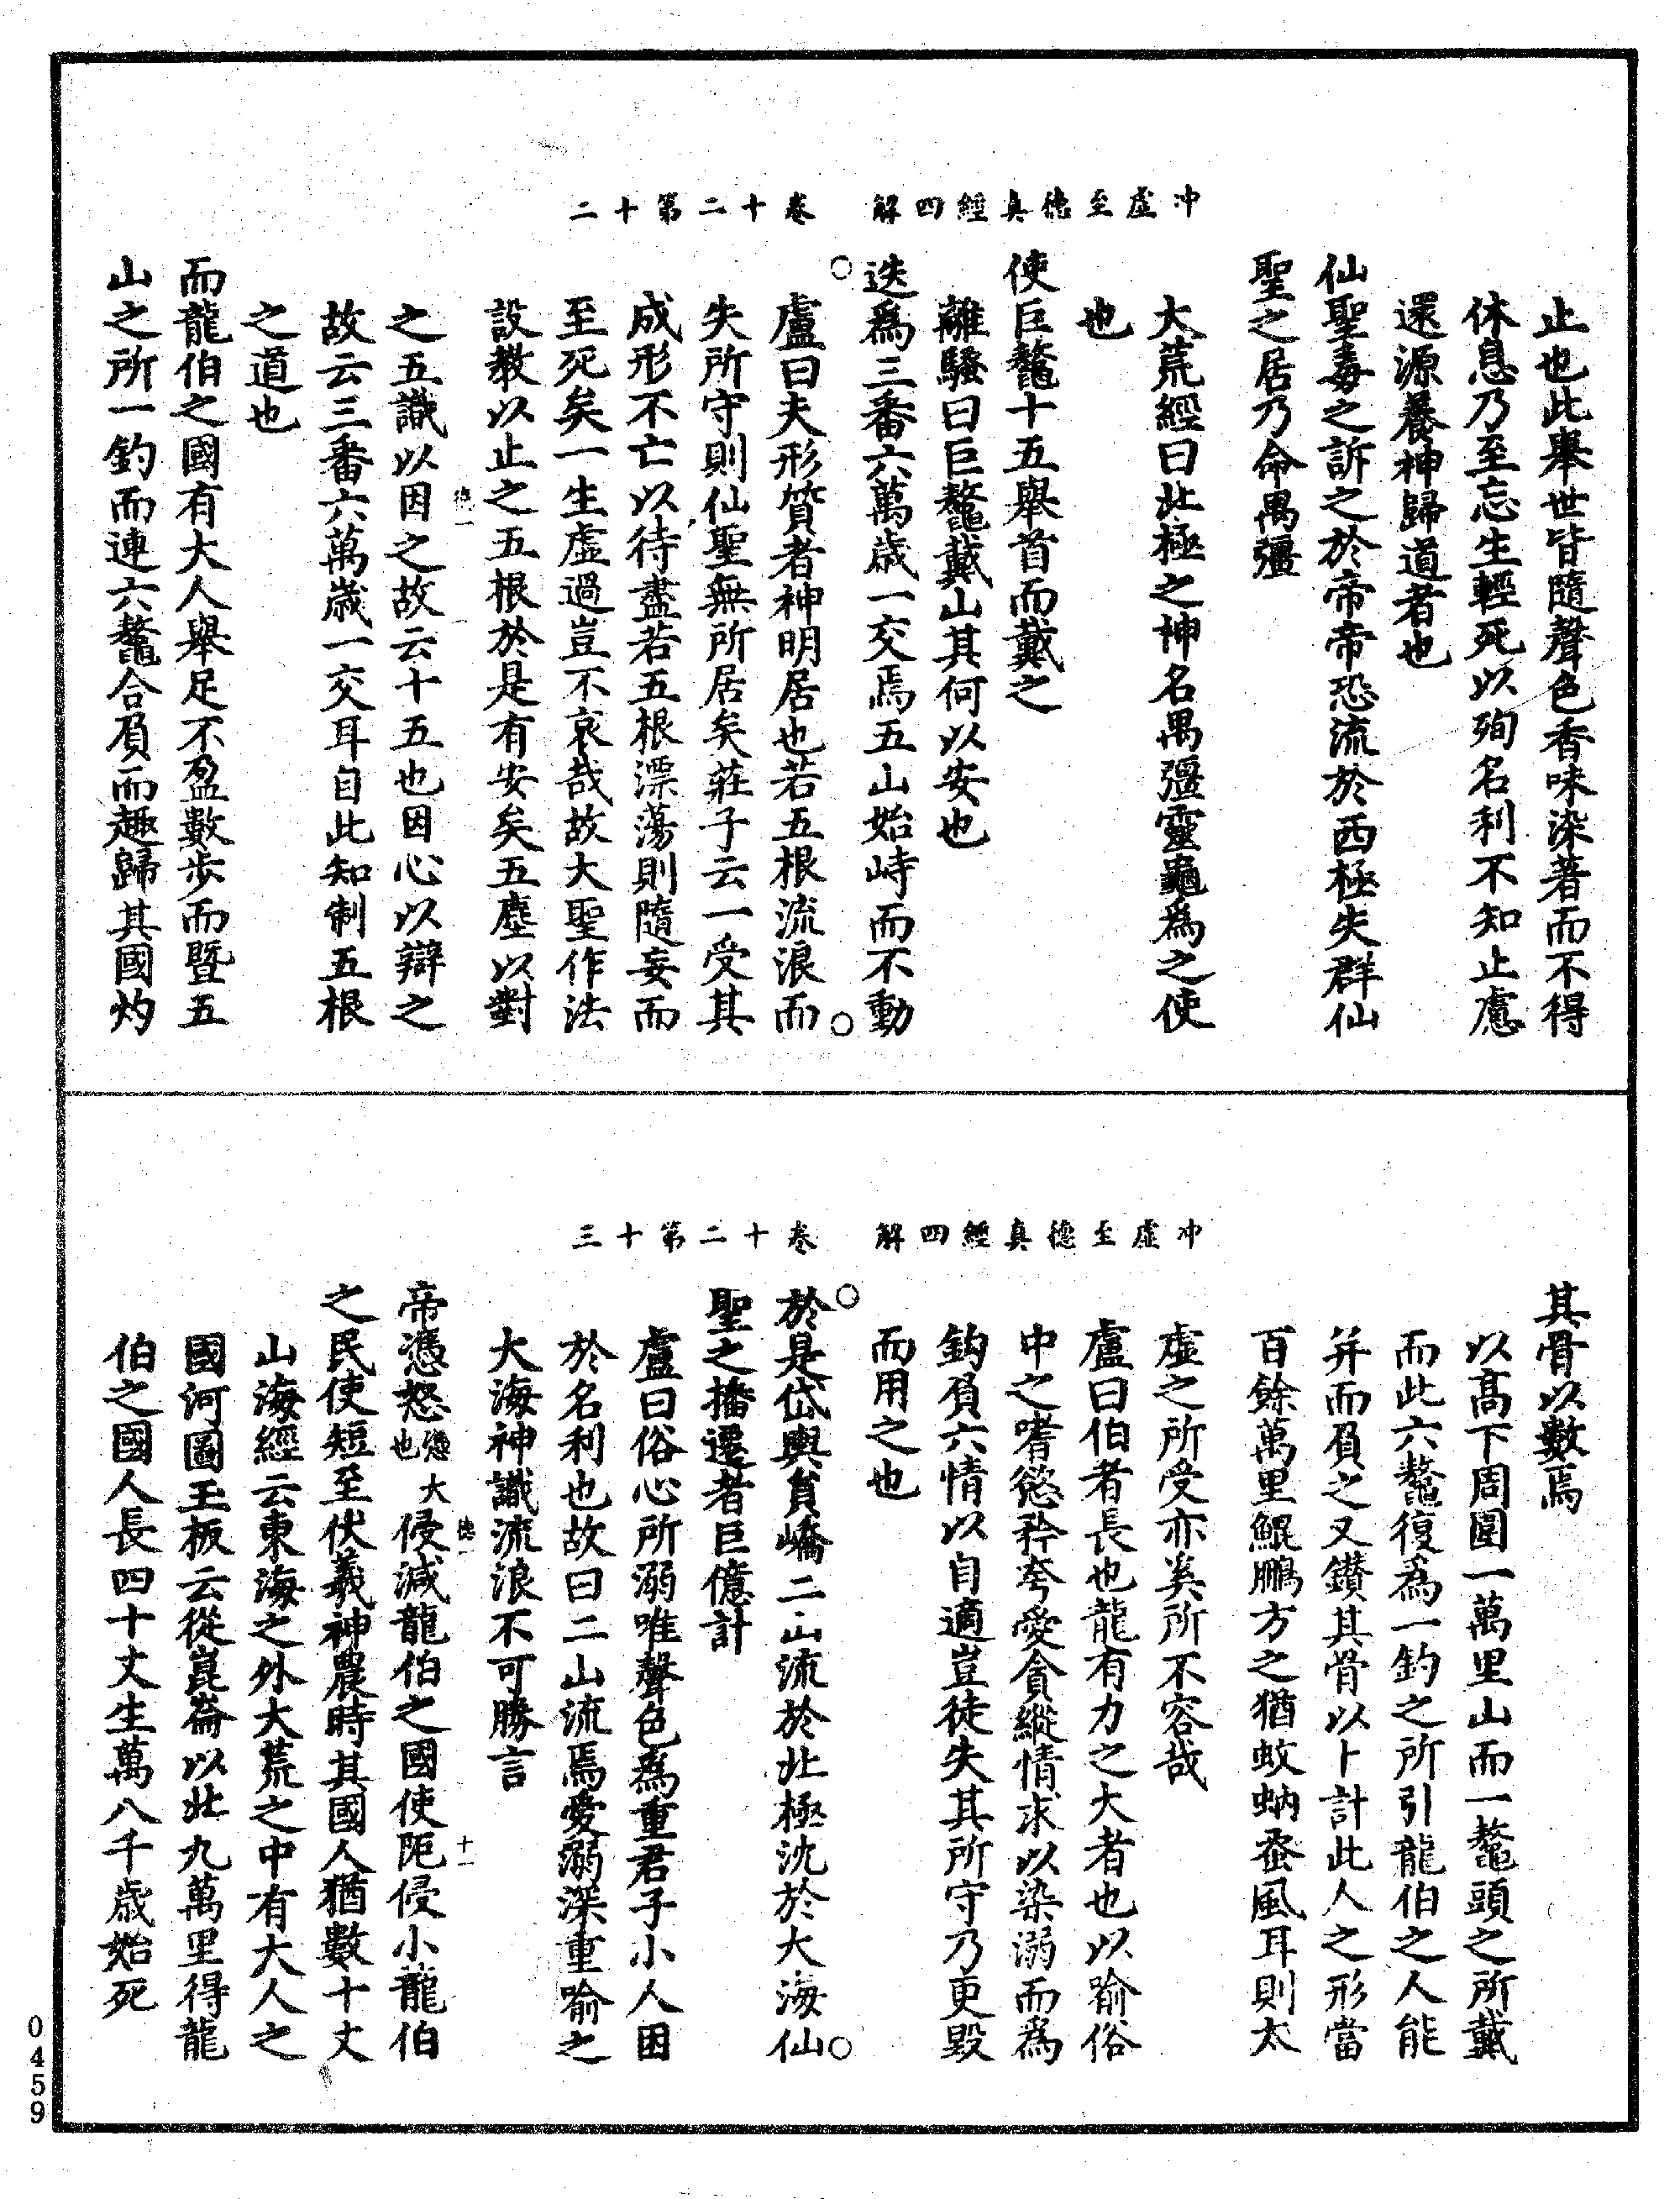 冲虛至德真經四解　卷十二第十二
止也此舉世皆隨聲色香味染著而不得
休息乃至忘生輕死以殉名利不知止慮
還源養神歸道者也
仙聖毒之訴之於帝帝恐流於西極失群仙
聖之居乃命禺彊
大荒經曰北極之神名禺彊靈龜爲之使
也
使巨鼇十五舉首而戴之
離騷曰巨鼇戴山其何以安也
迭爲三番六萬歲一交焉五山始峙而不動
盧曰夫形質者神明居也若五根流浪而
失所守則仙聖無所居矣莊子云一受其
成形不亡以待盡若五根漂蕩則隨妄而
至死矣一生虛過豈不哀哉故大聖作法
設教以止之五根於是有安矣五塵以對
之五識以因之故云十五也因心以辯之
故云三番六萬歲一交耳自此知制五根
之道也
而龍伯之國有大人舉足不盈數步而暨五
山之所一釣而連六鼇合負而趣歸其國灼
冲虛至德真經四解　卷十二第十三
其骨以數焉
以高下周圍一萬里山而一鼇頭之所戴
而此六鼇復爲一釣之所引龍伯之人能
并而負之又鑽其骨以卜計此人之形當
百餘萬里鯤鵬方之猶蚊蚋蚤風耳則太
虛之所受亦奚所不容哉
盧曰伯者長也龍有力之大者也以喻俗
中之嗜慾矜夸愛貪縱情求以染溺而爲
鈎負六情以自適豈徒失其所守乃更毀
而用之也
於是岱輿員嶠二山流於北極沈於大海仙
聖之播遷者巨億計
盧曰俗心所溺唯聲色爲重君子小人困
於名利也故曰二山流焉愛溺深重喻之
大海神識流浪不可勝言
帝憑怒憑大也侵減龍伯之國使阨侵小龍伯
之民使短至伏羲神農時其國人猶數十丈
山海經云東海之外大荒之中有大人之
國河圖玉板云從崑崙以北九萬里得龍
伯之國人長四十丈生萬八千歲始死
德一
德一
十一
0459